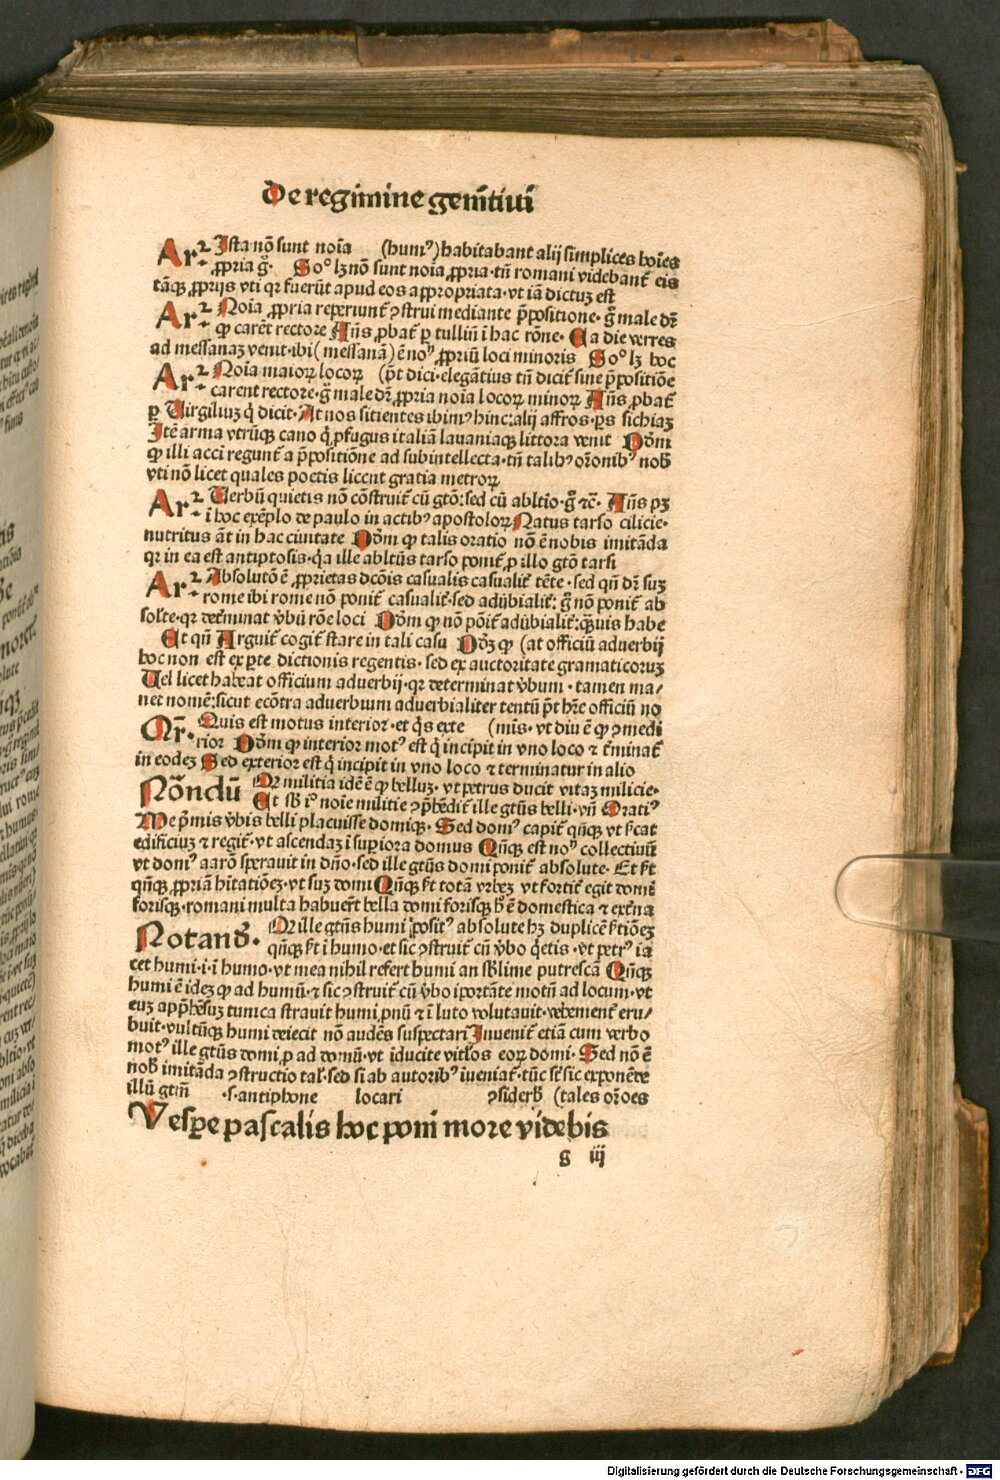 De regimine genit̄iui
Ar² Ista nō sunt noīa (hum⁹) habitabant alij simplices hoīes
ꝓpria g̊. So° lꝫ nō sunt noīa ꝓpria·tn̄ romani videbant̄ eis
tāqꝫ ꝓprijs vti qꝛ fuerūt apud eos appropriata·vt iā dictuꝫ est
Ar² Noīa ꝓpria reperiunt̄ ꝯstrui mediante p̄positione·g̊ male dꝛ̄
qꝫ carēt rectore Añs ꝓbat̄ ꝑ tulliū ī hac rōne· Ea die verres
ad messanaꝫ venit·ibi (messanā) ē no⁹ ꝓpriū loci minoris So° lꝫ hoc
Ar² Noīa maioꝝ locoꝝ (p̄t dici·elegātius tn̄ dicit̄ sine p̄positiōe
carent rectore·g̊ male dꝛ̄ ꝓpria noīa locoꝝ minoꝝ Añs ꝓbat̄
ꝑ Virgiliuꝫ q̄ dicit·At nos sitientes ibim⁹ hinc:alij affros·ꝑs sichiaꝫ
Itē arma vtrūqꝫ cano q̄ ꝓfugus italiā lauaniaqꝫ littora venit Dōm
ꝙ illi acci regunt̄ a p̄positiōne ad subintellecta·tn̄ talib⁹ oꝛōnib⁹ nob̄
vti nō licet quales poetis liccnt gratia metroꝝ
Ar² Verbū quietis nō cōstruit̄ cū gtō:sed cū abltīo·g̊ ⁊c̄· Añs pꝫ
ī hoc exēplo de paulo in actib⁹ apostoloꝝ Natus tarso cilicie·
nutritus āt in hac ciuitate Dōm ꝙ talis oratio nō ē nobis imitāda
qꝛ in ea est antiptosis·q̄a ille abltūs tarso ponit̄ ꝑ illo gtō tarsi
Ar² Absolutō ē ꝓprietas dcōis casualis casualit̄ tēte·sed qn̄ dꝛ̄ suꝫ
rome ibi rome nō ponit̄ casualit̄·sed adūbialit̄: g̊ nō ponit̄ ab
solꝉte·qꝛ det̄minat v̄bū rōe loci Dōm ꝙ nō pōit̄ adūbialit̄:q̄uis habe
Et qn̄ Arguit̄ cogit̄ stare in tali casu Dōꝫ ꝙ (at officiū aduerbij
hoc non est ex ꝑte dictionis regentis·sed ex auctoritate gramaticoruꝫ
Vel licet habeat officium aduerbij·qꝛ determinat v̄bum·tamen ma/
net nomē:sicut ecōtra aduerbium aduerbialiter tentū p̄t hr̄e officiū no
Qr̄. Quis est motus interior·et q̄s exte (mīs·vt diu ē ꝙ ꝯmedi
rior Dōm ꝙ interior mot⁹ est q̄ incipit in vno loco ⁊ t̄minat̄
in eodeꝫ Sed exterior est q̄ incipit in vno loco ⁊ terminatur in alio
Nōndū Qꝛ militia idē ē ꝙ belluꝫ·vt petrus ducit vitaꝫ milicie·
Et sb̄ i° noīe militie ꝯp̄hēdit̄ ille gtūs belli·vn̄ Orati⁹
Me p̄mis v̄bis belli placuisse domiqꝫ· Sed dom⁹ capit̄ qn̄qꝫ vt ẜcat
edificiuꝫ ⁊ regit̄·vt ascendaꝫ ī suꝑiora domus Qn̄qꝫ est no⁹ collectiuū
vt dom⁹ aarō sperauit in dn̄o·sed ille gtūs domi ponit̄ absolute· Et ẜt
qn̄qꝫ ꝓpriā hītatiōeꝫ·vt suꝫ domi Qn̄qꝫ ẜt totā vrbeꝫ vt fortit̄ egit domī
forisqꝫ·romani multa habuer̄t bella domi forisqꝫ h̄ ē domestica ⁊ ext̄na
Notand̄. Qꝛ ille gtūs humi posit⁹ absolute hꝫ duplicē ẜtiōeꝫ
qn̄qꝫ ẜt ī humo·et sic ꝯstruit̄ cū v̄bo q̄etis·vt petr⁹ ia
cet humi·i·ī humo·vt mea nihil refert humi an sb̄lime putrescā Qn̄qꝫ
humi ē ideꝫ ꝙ ad humū·⁊ sic ꝯstruit̄ cū v̄bo īportāte motū ad locum·vt
euꝫ app̄hēsuꝫ tunica strauit humi pnū ⁊ ī luto volutauit·vehement̄ eru/
buit·vultūqꝫ humi deiecit nō audēs suspectari Inuenit̄ etiā cum verbo
mot⁹ ille gtūs domi ꝑ ad domū·vt iducite vitꝉos eoꝝ domi· Sed nō ē
nob̄ imitāda ꝯstructio tal̄·sed si ab autorib⁹ iueniat̄·tūc sꝉ sic exponēde
illū gtm̄ ·s·antiphone locari ꝯsiderb̄ (tales oꝛ̄oes
Vespe pascalis hoc poni more videbis
g iij
Digitalisierung gefördert durch die Deutsche Forschungsgemeinschaft - DFG